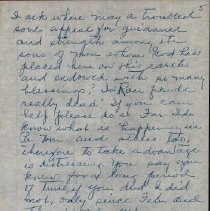 5
I ask where may a troubled
soul appeal for guidance
and strength among the
sons of men whom God has
placed here on this earth
and endowed with so many
blessings? Is
really dead? If you can
help please do so. For I do
know what is happening
to him and others
therefore to take advantage
is distressing. You say you
knew for a long period
of time, if you did I did
not, only since Feb. and